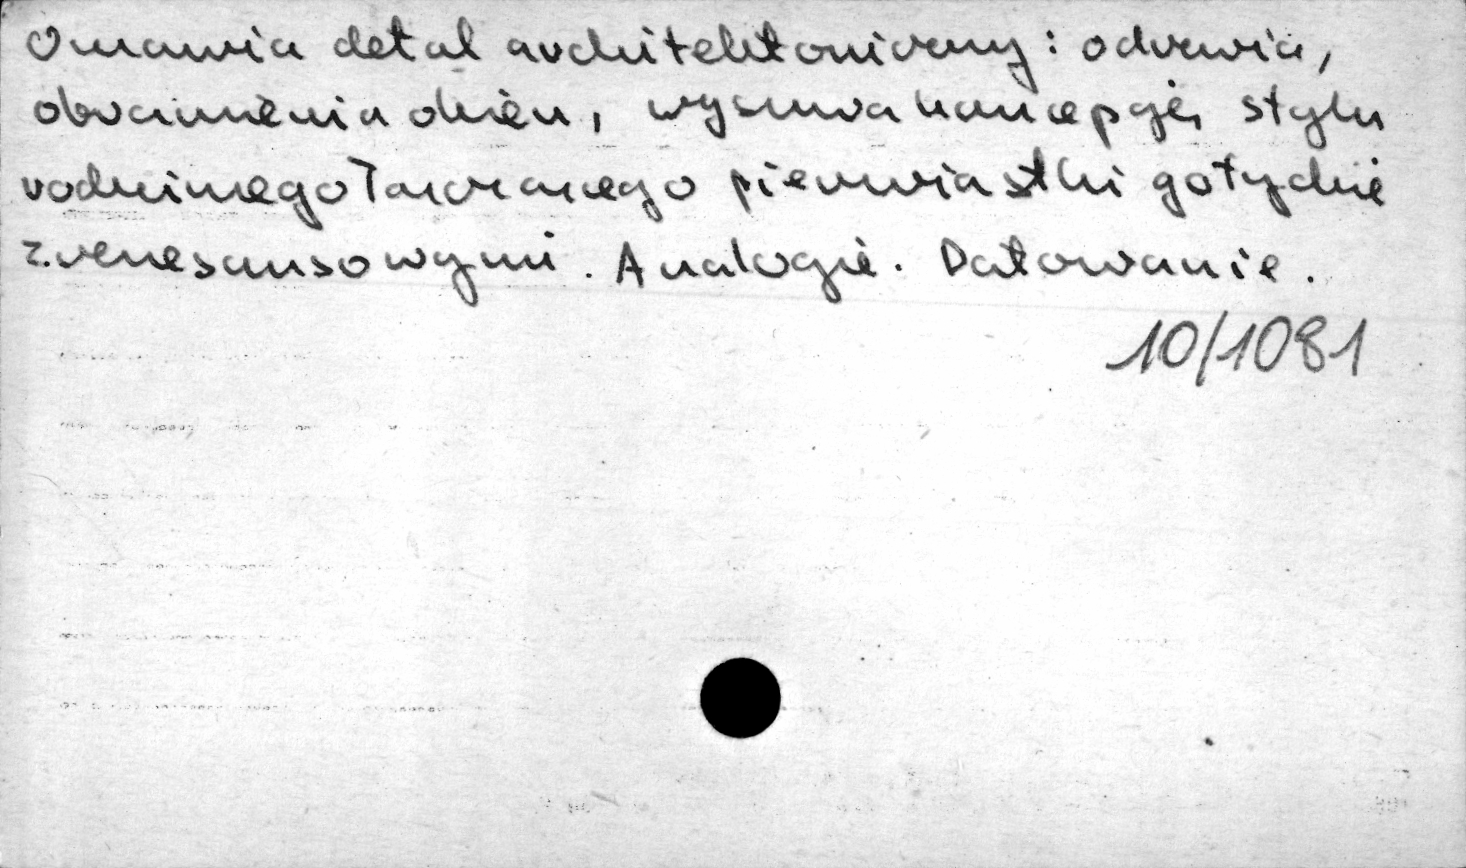 Omawia detal architektoniczny: odrzwia,
obramienia okien, wysuwa koncepcję stylu
rodzimego łączącego pierwiastki gotyckie
z renesansowymi. Analogie. Datowanie.
10/1081